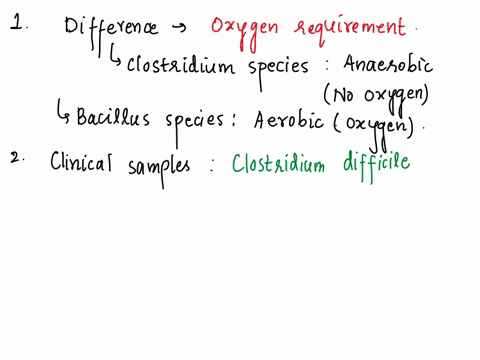 1. Difference → Oxygen requirement.
↳ Clostridium species : Anaerobic
(No oxygen)
↳ Bacillus species : Aerobic (Oxygen).
2. Clinical samples : Clostridium difficile